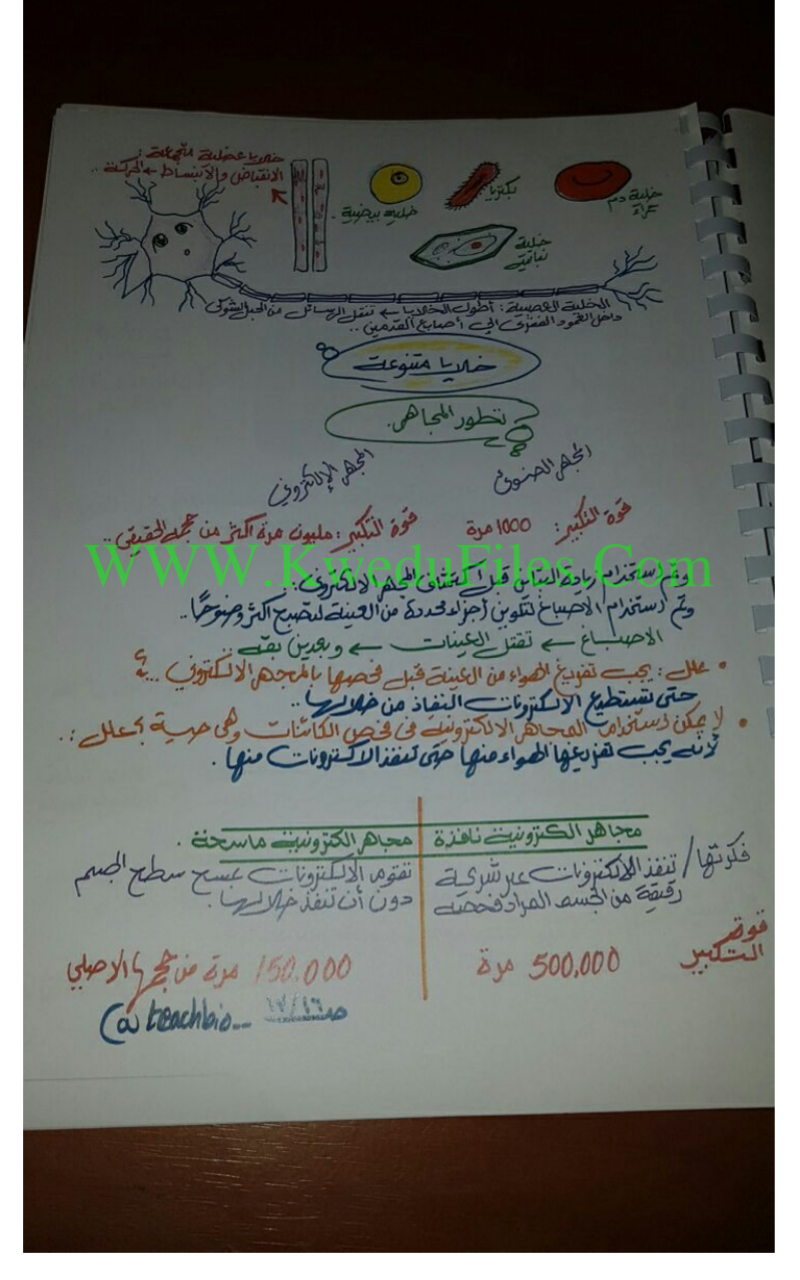 خلايا عضلية متجمعة:
الانقباض والانبساط ← الحركة..
خلية بيضية.
بكتريا
خلية دم
حمراء
خلية
نباتية
الخلية العصبية: أطول الخلايا ← تنقل الرسائل من الحبل الشوكي
داخل العمود الفقري الى أصابع القدمين..
خلايا متنوعة
تطور المجاهر.
المجهر الضوئي
المجهر الإلكتروني
قوة التكبير: 1000 مرة
قوة التكبير: مليون مرة أكثر من حجمه الحقيقي..
WWW.KweduFiles.Com
وتم استخدام قبل اكتشاف المجهر الالكتروني..
وتم استخدام الاصباغ لتلوين أجزاء محددة من العينة لتصبح اكثر وضوحًا..
الاصباغ ← تقتل العينات ←
• علل: يجب تفريغ الهواء من العينة قبل فحصها بالمجهر الالكتروني ..؟
حتى تستطيع الالكترونات النفاذ من خلالها..
• لا يمكن استخدام المجاهر الالكترونية في فحص الكائنات وهي حية؟ علل:.
لأنه يجب تفريغها الهواء منها حتى تنفذ الاكترونات منها.
مجاهر الكترونية نافذة
مجاهر الكترونية ماسحة.
فكرتها/ تنفذ الالكترونات عبر شريحة
رقيقة من الجسم المراد فحصه
تقوم الالكترونات بمسح سطح الجسم
دون أن تنفذ خلالها.
قوة
التكبير
500,000 مرة
150.000 مرة من حجمها الاصلي
@teachbio__